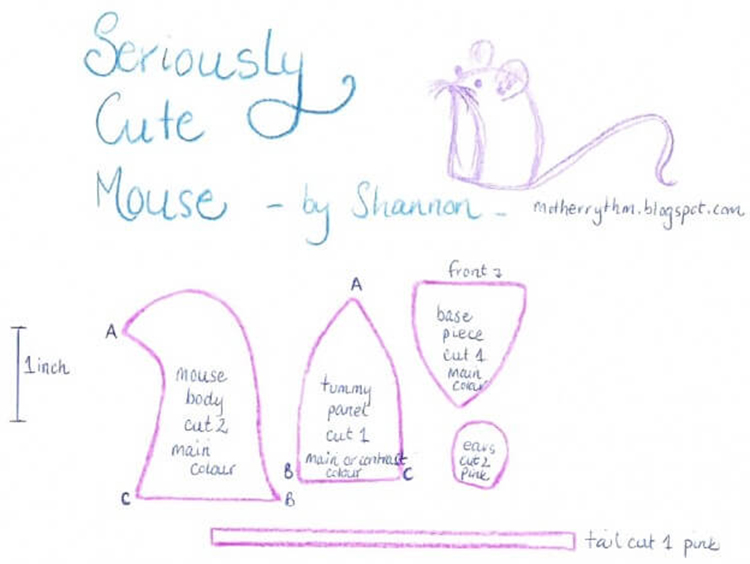 Seriously
Cute
Mouse - by Shannon -
motherrythm.blogspot.com
front
A
A
1 inch
mouse
body
cut 2
main
colour
C
B
tummy
panel
cut 1
main or contrast
colour
B
C
base
piece
cut 1
main
colour
ears
cut 2
pink
tail cut 1 pink